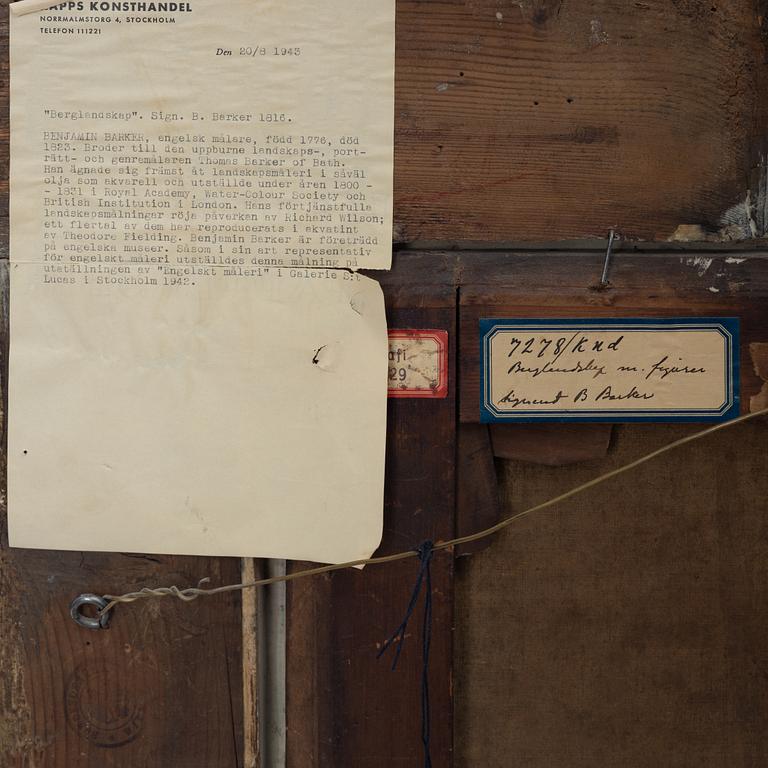 APPS KONSTHANDEL
NORRMALMSTORG 4, STOCKHOLM
TELEFON 111221
Den 20/8 1943
"Berglandskap". Sign. B. Barker 1816.
BENJAMIN BARKER, engelsk målare, född 1776, död
1823. Broder till den uppburne landskaps-, port-
rätt- och genremålaren Thomas Barker of Bath.
Han ägnade sig främst åt landskapsmåleri i såväl
olja som akvarell och utställde under åren 1800 -
- 1831 i Royal Academy, Water-Colour Society och
British Institution i London. Hans förtjänstfulla
landskapsmålningar röja påverkan av Richard Wilson;
ett flertal av dem har reproducerats i akvatint
av Theodore Fielding. Benjamin Barker är företrädd
på engelska museer. Såsom i sin art representativ
för engelskt måleri utställdes denna målning på
utställningen av "Engelskt måleri" i Galerie S:t
Lucas i Stockholm 1942.
afi
29
7278/Knd
Berglandskap m. figurer
Signerad B Barker